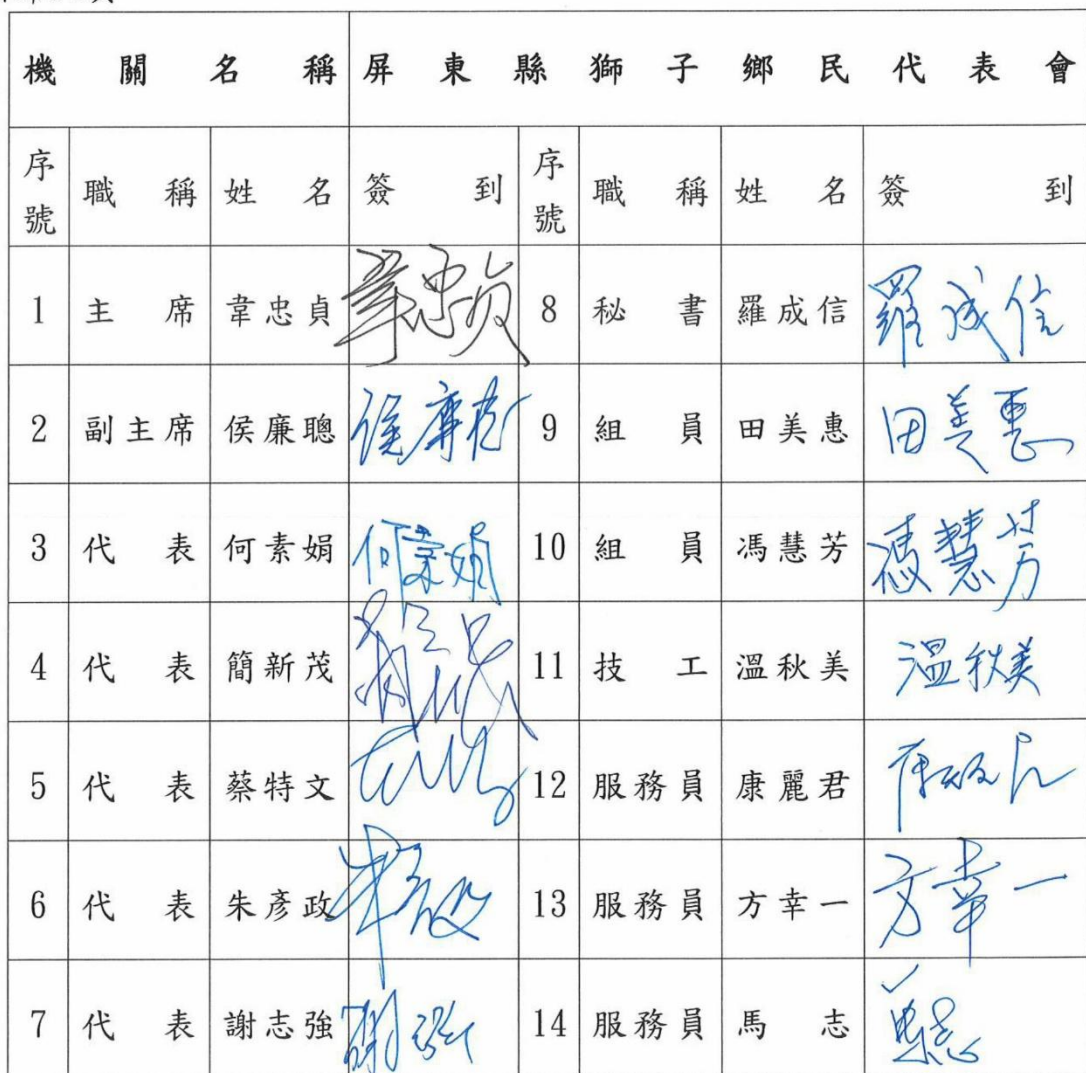 機關名稱 屏東縣獅子鄉民代表會
序號 職稱 姓名 簽到 序號 職稱 姓名 簽到
1 主席 韋忠貞 韋忠貞 8 秘書 羅成信 羅成信
2 副主席 侯廉聰 9 組員 田美惠 田美惠
3 代表 何素娟 何素娟 10 組員 馮慧芳 馮慧芳
4 代表 簡新茂 11 技工 溫秋美 溫秋美
5 代表 蔡特文 12 服務員 康麗君
6 代表 朱彥政 朱彥政 13 服務員 方幸一 方幸一
7 代表 謝志強 14 服務員 馬志 馬志